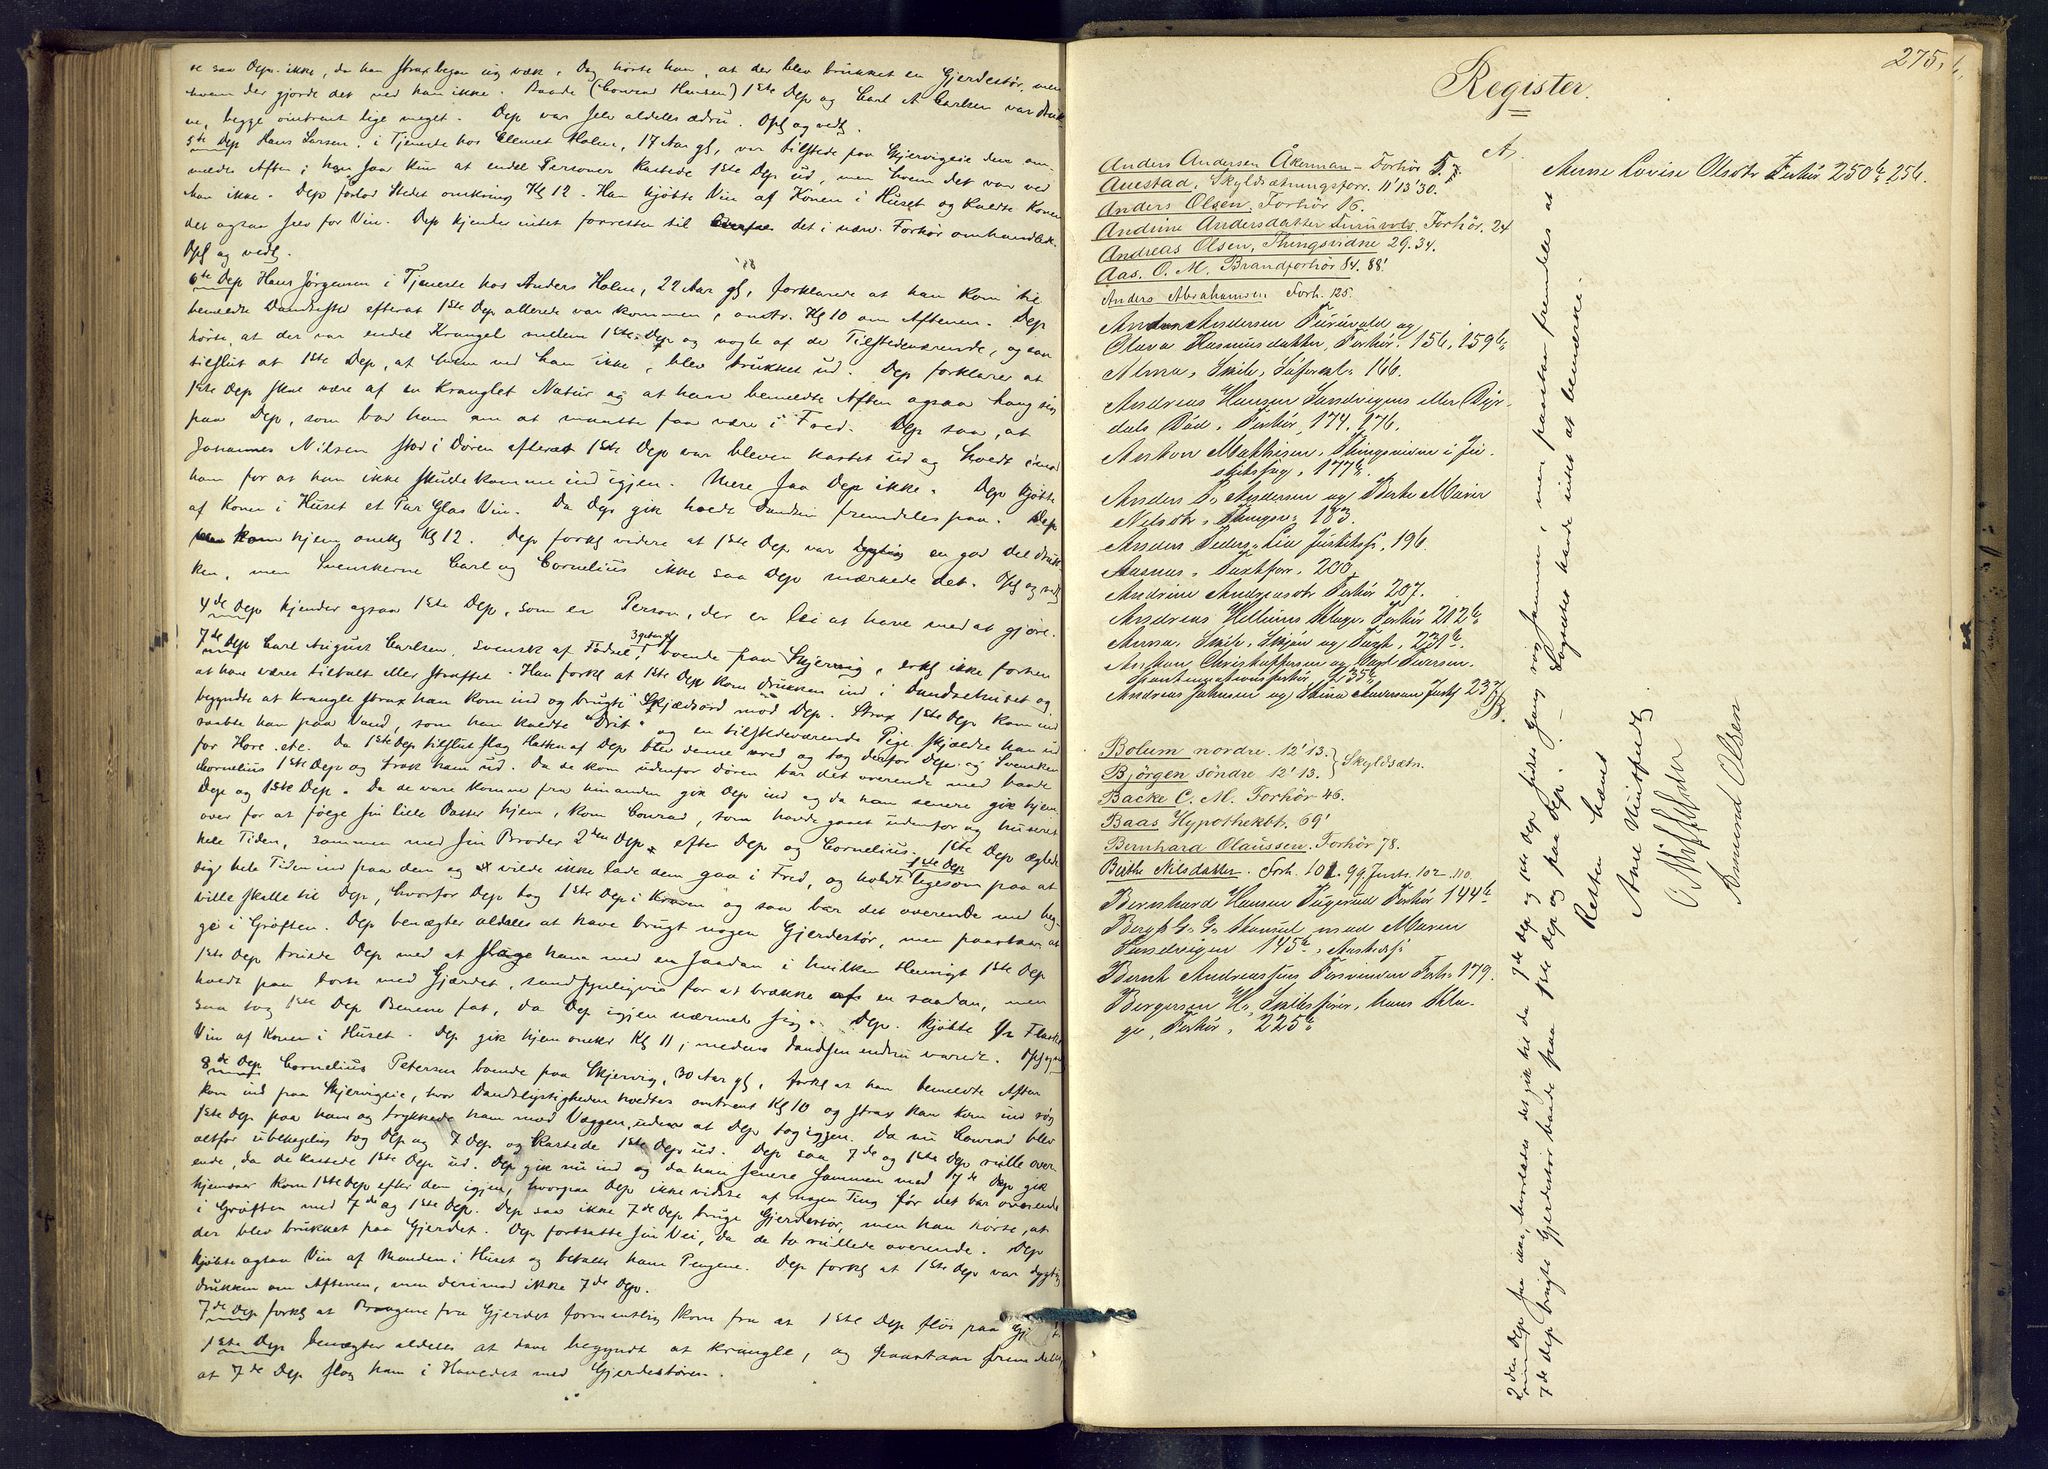 se saa Dep. ikke, da han strax begav sig væk. Dog hørte han, at der blev brukket en Gjerdestør, men
hvem der gjorde det ved han ikke. Baade (Conrad Hansen) 1ste Dep og Carl A Carlsen var druk-
ne, begge omtrent lige meget. Dep var selv aldeles ædru. Opl og vedt.
5te Dep Hans Larsen, i Tjeneste hos Clemet Holm, 17 Aar gl, var tilstede paa Skjervigeie den om-
meldte Aften; han saa kun at endel Personer kastede 1ste Dep ud, men hvem det var ved
han ikke. Dep forlod Stedet omkring Kl 12. Han kjøbte Vin af Konen i Huset og kaldte Konen
det ogsaa selv for Vin. Dep kjender intet forresten til det i nærv. Forhør omhandlede.
Opl og vedt.
6te Dep Hans Jørgensen i Tjeneste hos Anders Holm, 22 Aar gl, forklarede at han kom til
bemeldte Dandsested efterat 1ste Dep allerede var kommen, omtr. Kl 10 om Aftenen. Dep
hørte, at der var endel Krangel mellem 1ste Dep og nogle af de Tilstedeværende, og saa
tilslut at 1ste Dep, af hvem ved han ikke, blev trukket ud. Dep forklarer at
1ste Dep skal være af en kranglet Natur og at han bemeldte Aften ogsaa hang sig
paa Dep, som bad ham om at maatte faa være i Fred. Dep saa, at
Johannes Nilsen stod i Døren efterat 1ste Dep var bleven kastet ud og holdt imod
ham for at han ikke skulde komme ind igjen. Mere saa Dep ikke. Dep kjøbte
af Konen i Huset et Par Glas Vin. Da Dep gik havde Dandsen fremdeles paa. Dep
kom hjem omkr Kl 12. Dep forkl videre at 1ste Dep var en god Del druk-
ken, men Svenskerne Carl og Cornelius ikke saa Dep mærkede det. Opl og vedt
4de Dep kjender ogsaa 1ste Dep, som en Person, der er lei at have med at gjøre.
7de Dep Carl August Carlsen, svensk af Fødsel, boende paa Skjervig, erkl ikke forhen
at have været tiltalt eller straffet. Han forkl at 1ste Dep kom drukken ind i Dandsehuset og
begyndte at krangle strax han kom ind og brugte Skjældsord mod Dep. Strax 1ste Dep kom ind
raabte han paa Vand, som han kaldte "Drit" og en tilstedeværende Pige skjældte han ud
for Hore etc. Da 1ste Dep tilslut slog Hatten af Dep blev denne vred og tog derfor Dep og Svensken
Cornelius 1ste Dep og trak ham ud. Da de kom udenfor Døren bar det overende med baade
Dep og 1ste Dep. Da de vare komne fra hinanden gik Dep ind og da han senere gik hjem-
over for at følge sin lille Datter hjem, kom Conrad, som havde gaaet udenfor og huseret
hele Tiden, sammen med sin Broder 2den Dep, efter Dep og Cornelius. 1ste Dep æglede
sig hele Tiden ind paa dem og vilde ikke lade dem gaa i Fred, og holdt 1ste Dep ligesom paa at
ville skalle til Dep, hvorfor Dep tog 1ste Dep i Kraven og saa bar det overende med beg-
ge i Grøften. Dep benægter aldeles at have brugt nogen Gjerdestør, men paastaar at
1ste Dep truede Dep med at slage ham med en saadan i hvilken Hensigt 1ste Dep
holdt paa borte med Gjærdet, sandsynligvis for at brække af en saadan, men
saa tog 1ste Dep Benene fat, da Dep igjen nærmet sig. Dep. kjøbte 1/2 Flaske
Vin af Konen i Huset. Dep gik hjem omkr Kl 11, medens Dandsen endnu varede. Opl og vedt
8de Dep Cornelius Petersen boende paa Skjervig, 30 Aar gl, forkl at han bemeldte Aften
kom ind paa Skjervigeie, hvor Dandselystigheden holdtes omtrent Kl 10 og strax han kom ind røg
1ste Dep paa ham og trykkede ham mod Væggen, uden at Dep tog igjen. Da nu Conrad blev
altfor ubehagelig tog Dep og 7 Dep og kastede 1ste Dep ud. Dep saa 7de og 1ste Dep rulle over-
ende, da de kastede 1ste Dep ud. Dep gik nu ind og da han senere sammen med 7de Dep gik
hjemover kom 1ste Dep efter dem igjen, hvorpaa Dep ikke vidste af nogen Ting før det bar overende
i Grøften med 7de og 1ste Dep. Dep saa ikke 7de Dep bruge Gjerdestør, men han hørte, at
der blev brukket paa Gjerdet. Dep fortsatte sin Vei, da de to rullede overende. Dep
kjøbte ogsaa Vin af Manden i Huset og betalte ham Pengene. Dep forkl at 1ste Dep var dygtig
drukken om Aftenen, men derimod ikke 7de Dep.
7de Dep forkl at Braagene fra Gjerdet formentlig kom fra at 1ste Dep fløi paa
1ste Dep benægter aldeles at have begyndt at krangle, og paastaar fremdeles
at 7de Dep slog ham i Hovedet med Gjerdestøren.
275.b.
Register.
A.
Anders Andersen Åkerman - Forhör 5. 7
Auestad, Skyldsætningsforr. 11' 13' 30.
Anders Olsen, Forhör 16.
Andrine Andersdatter Furuvold, Forhör. 24
Andreas Olsen, Thingsvidne 29. 34.
Aas. O. M. Brandforhör 84. 88'
Anders Abrahamsen Forh. 125.
Anders Andersen Furuvold og
Olava Rasmusdatter, Forhör. 156, 159b
Alma, Skib, Söforkl. 166.
Andreas Hansen Sandvigens eller Dyr-
dals Död, Forhör, 174. 176.
Anton Mathisen, Thingsvidne i Ju-
stitssag, 177b
Anders P. Andersen og Berte Marie
Nilsdtr, Thingsv. 183.
Anders Peders. Lia Justitss. 196.
Asmus, Taxtforr. 200.
Andrine Andreasdtr Forhör 207.
Andreas Helliesens Klage, Forhör 212b
Anna, Skib, Skjön og Taxt, 221b
Anton Christoffersen og Carl Iversen.
Konfrontationsforhör 235b
Andreas Johnsen og Stina Andersen Justs 237b
B.
Bolum nordre. 12' 13. } Skyldsætn.
Björgen söndre 12' 13.
Backe C. M. Forhör 46.
Baas Hypothekbt. 69'
Bernhard Olaussen. Forhör 78.
Berthe Nilsdatter. Forh. 101. 99 Justs. 102. 110.
Bernhard Hansen Tugerud Forhör 144b
Berg G. G. Konsul mod Maren
Sandvigen 145b
Bernt Andreassens Forsvinden Forh. 179.
Bergersen H. Skibsförer, hans Kla-
ge, Forhör, 225b
Anne Lovise Olsdtr Forhör 250b 256.
2den Dep saa ikke, hvordan det gik til da 7de Dep og 1ste Dep første Gang røg sammen, men paastaar fremdeles at
7de Dep brugte Gjerdestør baade paa 1ste Dep og paa Dep. — Sagsøgte havde intet at bemærke.
Retten hævet
Arne
Amund Olsen